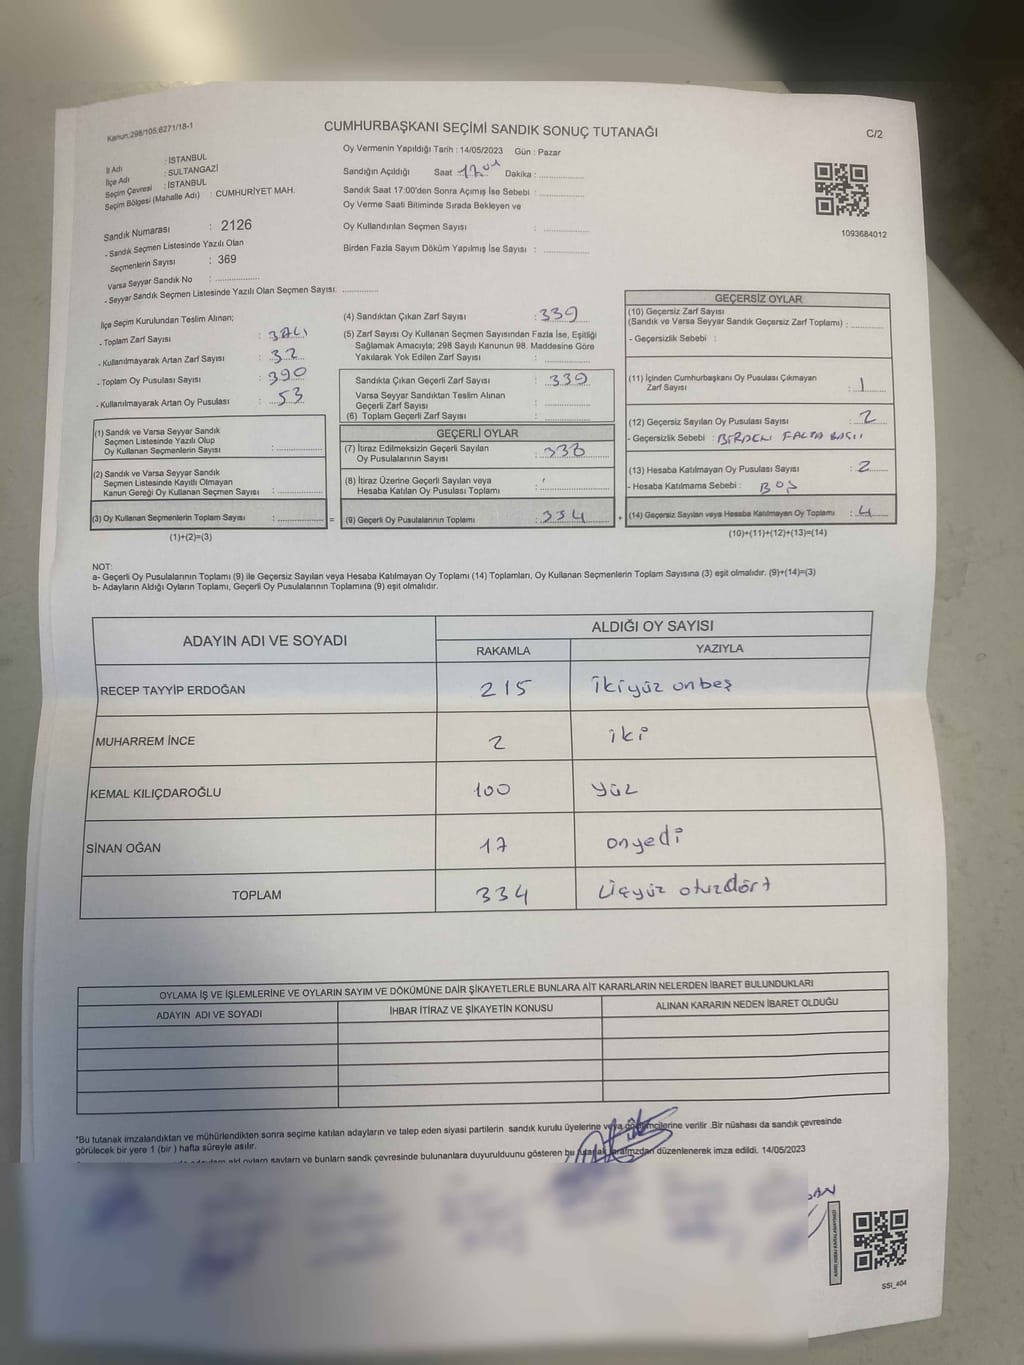 Kanun:298/105;6271/18-1
CUMHURBAŞKANI SEÇİMİ SANDIK SONUÇ TUTANAĞI
C/2
Oy Vermenin Yapıldığı Tarih : 14/05/2023 Gün : Pazar
İl Adı : İSTANBUL
İlçe Adı : SULTANGAZİ
Seçim Çevresi : İSTANBUL
Seçim Bölgesi (Mahalle Adı) : CUMHURİYET MAH.
Sandık Numarası : 2126
- Sandık Seçmen Listesinde Yazılı Olan
Seçmenlerin Sayısı : 369
Varsa Seyyar Sandık No :
- Seyyar Sandık Seçmen Listesinde Yazılı Olan Seçmen Sayısı:
Sandığın Açıldığı Saat Dakika :
Sandık Saat 17:00'den Sonra Açımış İse Sebebi :
Oy Verme Saati Bitiminde Sırada Bekleyen ve
Oy Kullandırılan Seçmen Sayısı :
Birden Fazla Sayım Döküm Yapılmış İse Sayısı :
1093684012
İlçe Seçim Kurulundan Teslim Alınan;
- Toplam Zarf Sayısı :
- Kullanılmayarak Artan Zarf Sayısı : 32
- Toplam Oy Pusulası Sayısı : 390
- Kullanılmayarak Artan Oy Pusulası : 53
(1) Sandık ve Varsa Seyyar Sandık
Seçmen Listesinde Yazılı Olup
Oy Kullanan Seçmenlerin Sayısı :
(2) Sandık ve Varsa Seyyar Sandık
Seçmen Listesinde Kayıtlı Olmayan
Kanun Gereği Oy Kullanan Seçmen Sayısı :
(3) Oy Kullanan Seçmenlerin Toplam Sayısı : =
(1)+(2)=(3)
(4) Sandıktan Çıkan Zarf Sayısı : 339
(5) Zarf Sayısı Oy Kullanan Seçmen Sayısından Fazla İse, Eşitliği
Sağlamak Amacıyla; 298 Sayılı Kanunun 98. Maddesine Göre
Yakılarak Yok Edilen Zarf Sayısı :
Sandıkta Çıkan Geçerli Zarf Sayısı : 339
Varsa Seyyar Sandıktan Teslim Alınan
Geçerli Zarf Sayısı :
(6) Toplam Geçerli Zarf Sayısı :
GEÇERLİ OYLAR
(7) İtiraz Edilmeksizin Geçerli Sayılan
Oy Pusulalarının Sayısı : 338
(8) İtiraz Üzerine Geçerli Sayılan veya
Hesaba Katılan Oy Pusulası Toplamı :
(9) Geçerli Oy Pusulalarının Toplamı : 334 +
GEÇERSİZ OYLAR
(10) Geçersiz Zarf Sayısı
(Sandık ve Varsa Seyyar Sandık Geçersiz Zarf Toplamı) :
- Geçersizlik Sebebi :
(11) İçinden Cumhurbaşkanı Oy Pusulası Çıkmayan
Zarf Sayısı : 1
(12) Geçersiz Sayılan Oy Pusulası Sayısı : 2
- Geçersizlik Sebebi : BİRDEN FALZA
(13) Hesaba Katılmayan Oy Pusulası Sayısı : 2
- Hesaba Katılmama Sebebi : BOŞ
(14) Geçersiz Sayılan veya Hesaba Katılmayan Oy Toplamı : 4
(10)+(11)+(12)+(13)=(14)
NOT:
a- Geçerli Oy Pusulalarının Toplamı (9) ile Geçersiz Sayılan veya Hesaba Katılmayan Oy Toplamı (14) Toplamları, Oy Kullanan Seçmenlerin Toplam Sayısına (3) eşit olmalıdır. (9)+(14)=(3)
b- Adayların Aldığı Oyların Toplamı, Geçerli Oy Pusulalarının Toplamına (9) eşit olmalıdır.
ADAYIN ADI VE SOYADI
ALDIĞI OY SAYISI
RAKAMLA YAZIYLA
RECEP TAYYİP ERDOĞAN 215 ikiyüz onbeş
MUHARREM İNCE 2 iki
KEMAL KILIÇDAROĞLU 100 yüz
SİNAN OĞAN 17 onyedi
TOPLAM 334 üçyüz otuzdört
OYLAMA İŞ VE İŞLEMLERİNE VE OYLARIN SAYIM VE DÖKÜMÜNE DAİR ŞİKAYETLERLE BUNLARA AİT KARARLARIN NELERDEN İBARET BULUNDUKLARI
ADAYIN ADI VE SOYADI İHBAR İTİRAZ VE ŞİKAYETİN KONUSU ALINAN KARARIN NEDEN İBARET OLDUĞU
*Bu tutanak imzalandıktan ve mühürlendikten sonra seçime katılan adayların ve talep eden siyasi partilerin sandık kurulu üyelerine veya gözlemcilerine verilir .Bir nüshası da sandık çevresinde
görülecek bir yere 1 (bir ) hafta süreyle asılır.
bunların sandk çevresinde bulunanlara duyurulduunu gösteren bu tutanak tarafmzdan düzenlenerek imza edildi. 14/05/2023
SSİ_404